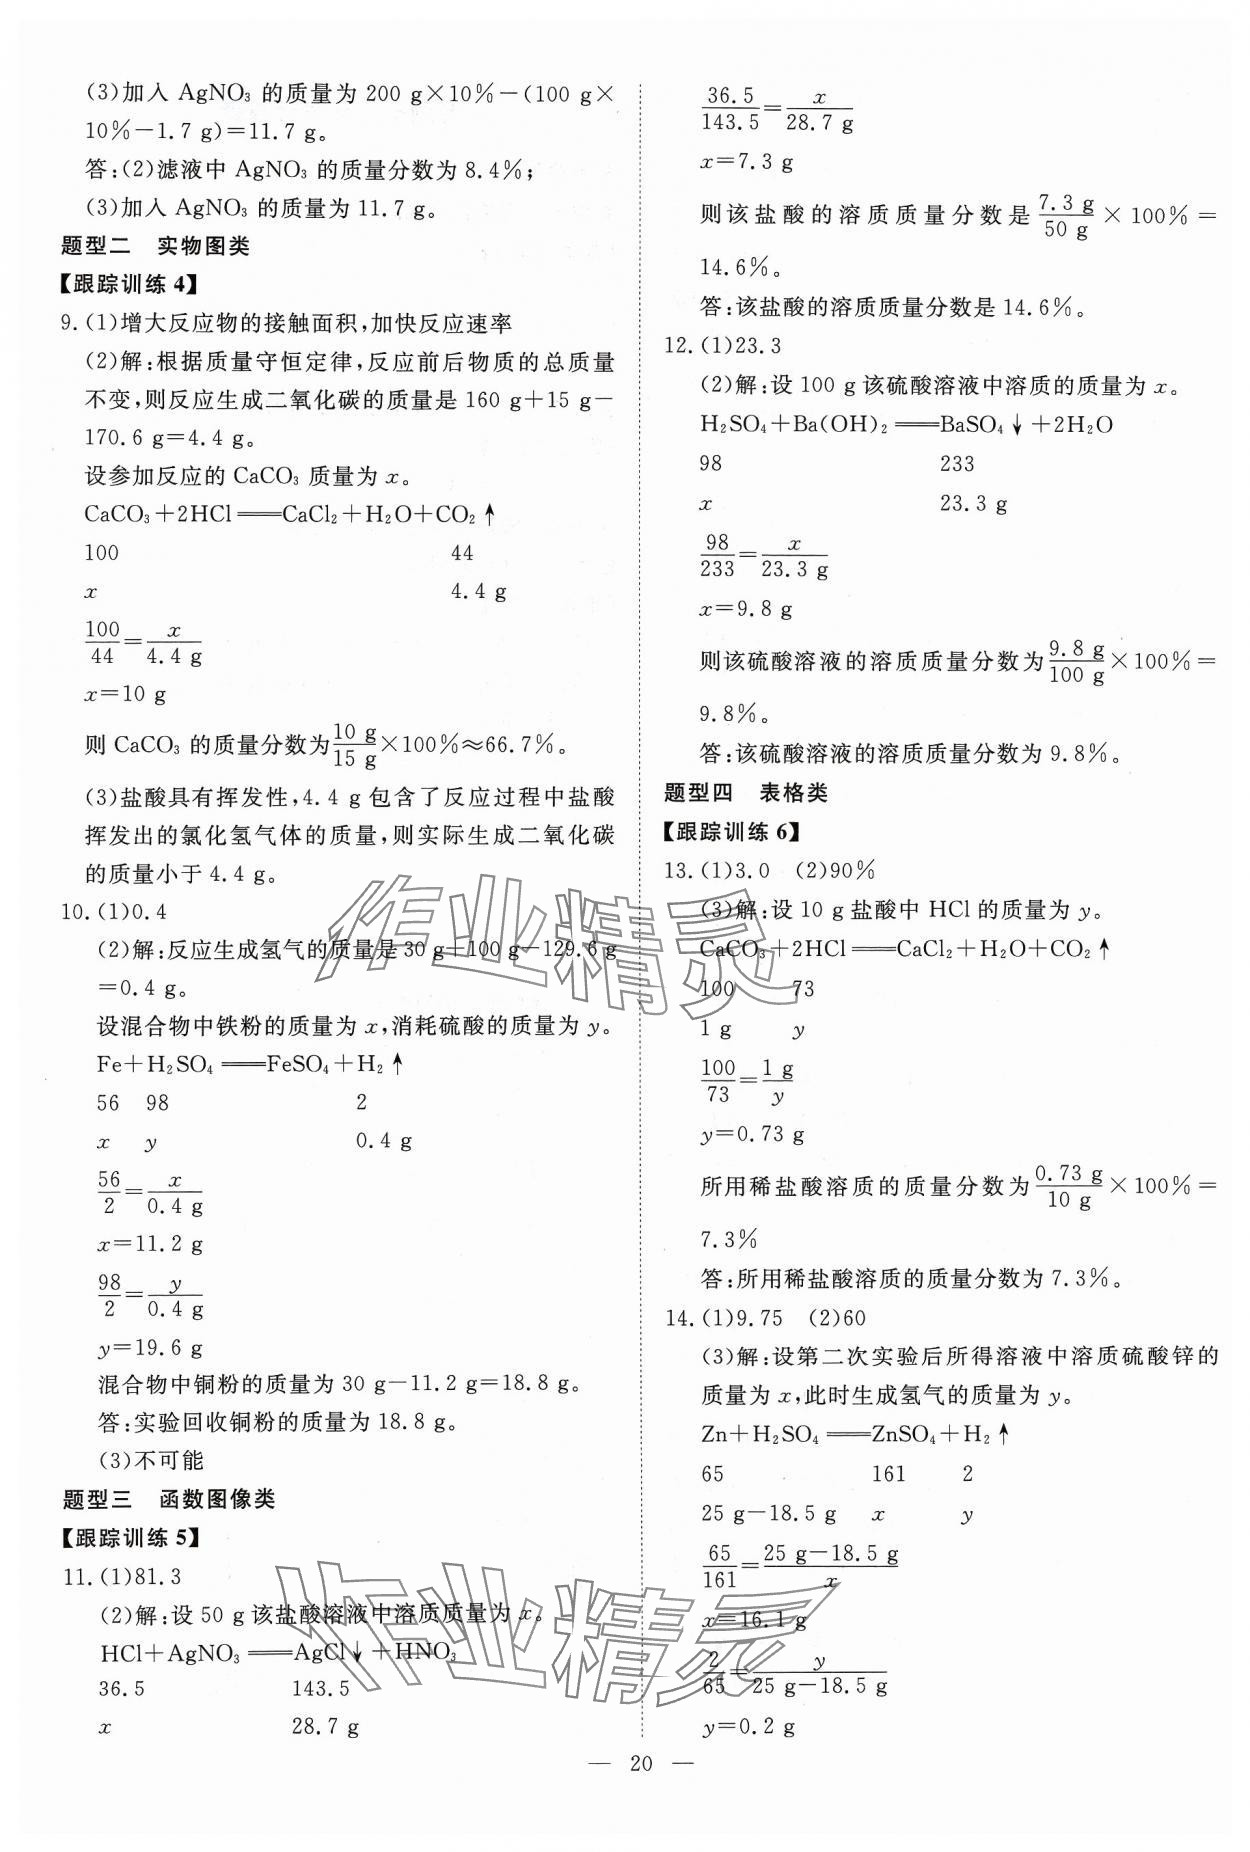 (3)加入 AgNO₃ 的质量为 200 g×10%－(100 g×
10%－1.7 g)＝11.7 g。
答:(2)滤液中 AgNO₃ 的质量分数为 8.4%;
(3)加入 AgNO₃ 的质量为 11.7 g。
题型二　实物图类
【跟踪训练 4】
9.(1)增大反应物的接触面积,加快反应速率
(2)解:根据质量守恒定律,反应前后物质的总质量
不变,则反应生成二氧化碳的质量是 160 g＋15 g－
170.6 g＝4.4 g。
设参加反应的 CaCO₃ 质量为 x。
CaCO₃＋2HCl══CaCl₂＋H₂O＋CO₂↑
100　44
x　4.4 g
100/44＝x/4.4 g
x＝10 g
则 CaCO₃ 的质量分数为 10 g/15 g×100%≈66.7%。
(3)盐酸具有挥发性,4.4 g 包含了反应过程中盐酸
挥发出的氯化氢气体的质量,则实际生成二氧化碳
的质量小于 4.4 g。
10.(1)0.4
(2)解:反应生成氢气的质量是 30 g＋100 g－129.6 g
＝0.4 g。
设混合物中铁粉的质量为 x,消耗硫酸的质量为 y。
Fe＋H₂SO₄══FeSO₄＋H₂↑
56　98　2
x　y　0.4 g
56/2＝x/0.4 g
x＝11.2 g
98/2＝y/0.4 g
y＝19.6 g
混合物中铜粉的质量为 30 g－11.2 g＝18.8 g。
答:实验回收铜粉的质量为 18.8 g。
(3)不可能
题型三　函数图像类
【跟踪训练 5】
11.(1)81.3
(2)解:设 50 g 该盐酸溶液中溶质质量为 x。
HCl＋AgNO₃══AgCl↓＋HNO₃
36.5　143.5
x　28.7 g
36.5/143.5＝x/28.7 g
x＝7.3 g
则该盐酸的溶质质量分数是 7.3 g/50 g×100%＝
14.6%。
答:该盐酸的溶质质量分数是 14.6%。
12.(1)23.3
(2)解:设 100 g 该硫酸溶液中溶质的质量为 x。
H₂SO₄＋Ba(OH)₂══BaSO₄↓＋2H₂O
98　233
x　23.3 g
98/233＝x/23.3 g
x＝9.8 g
则该硫酸溶液的溶质质量分数为 9.8 g/100 g×100%＝
9.8%。
答:该硫酸溶液的溶质质量分数为 9.8%。
题型四　表格类
【跟踪训练 6】
13.(1)3.0　(2)90%
(3)解:设 10 g 盐酸中 HCl 的质量为 y。
CaCO₃＋2HCl══CaCl₂＋H₂O＋CO₂↑
100　73
1 g　y
100/73＝1 g/y
y＝0.73 g
所用稀盐酸溶质的质量分数为 0.73 g/10 g×100%＝
7.3%
答:所用稀盐酸溶质的质量分数为 7.3%。
14.(1)9.75　(2)60
(3)解:设第二次实验后所得溶液中溶质硫酸锌的
质量为 x,此时生成氢气的质量为 y。
Zn＋H₂SO₄══ZnSO₄＋H₂↑
65　161　2
25 g－18.5 g　x　y
65/161＝25 g－18.5 g/x
x＝16.1 g
2/65＝y/25 g－18.5 g
y＝0.2 g
— 20 —
作业精灵
作业精灵